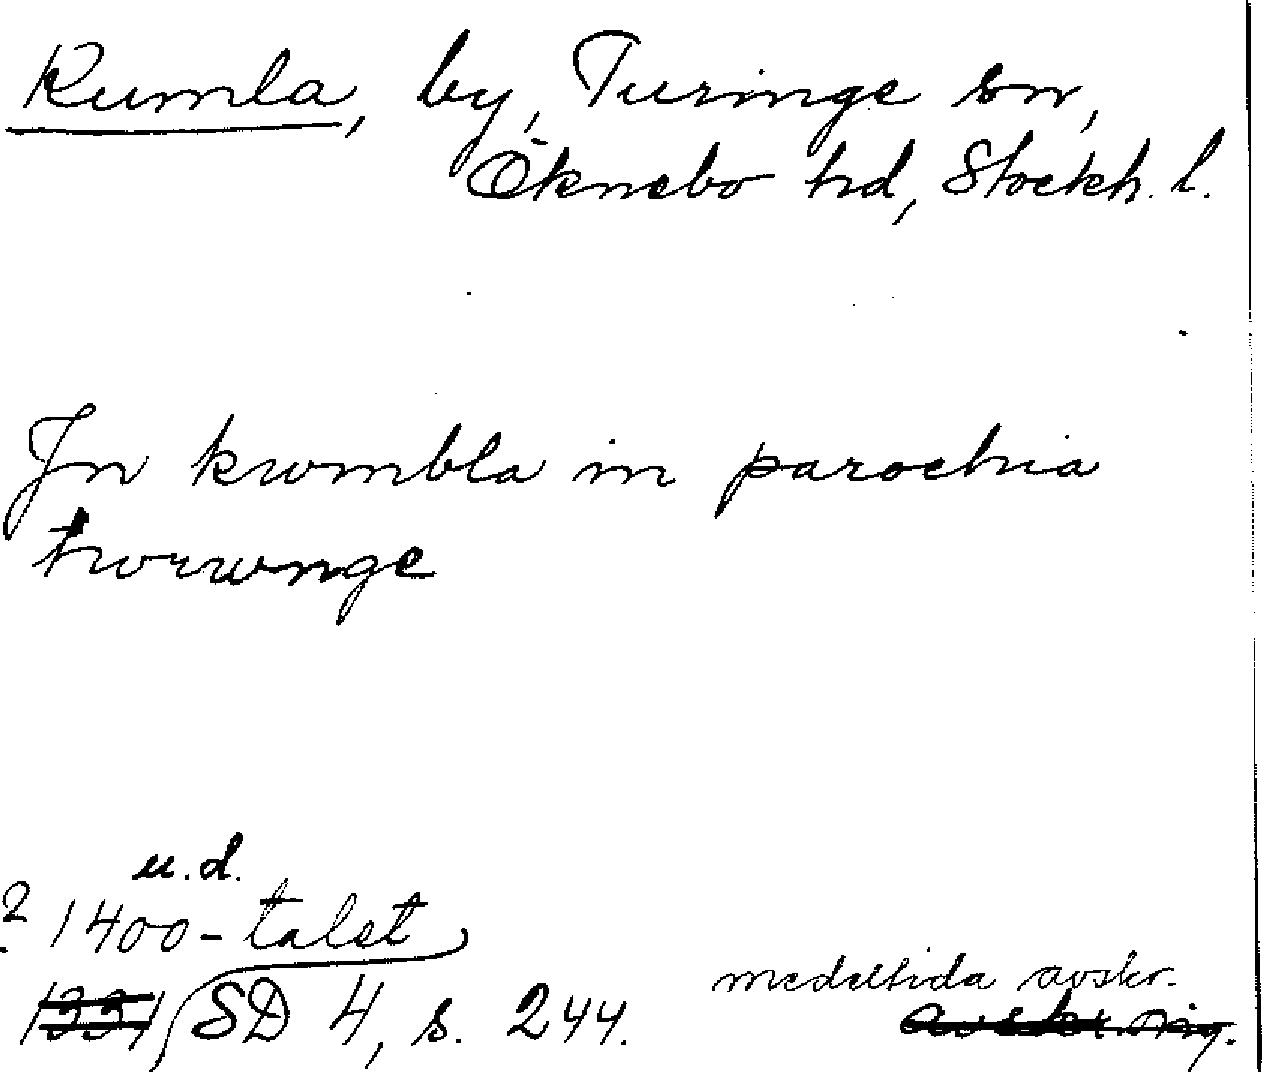 Kumla, by, Turinge sn,
Öknebo hd, Stockh. l.
Jn kwmbla in parochia
twrwnge
u.d.
? 1400-talet
1331, SD 4, s. 244.
medeltida avskr.